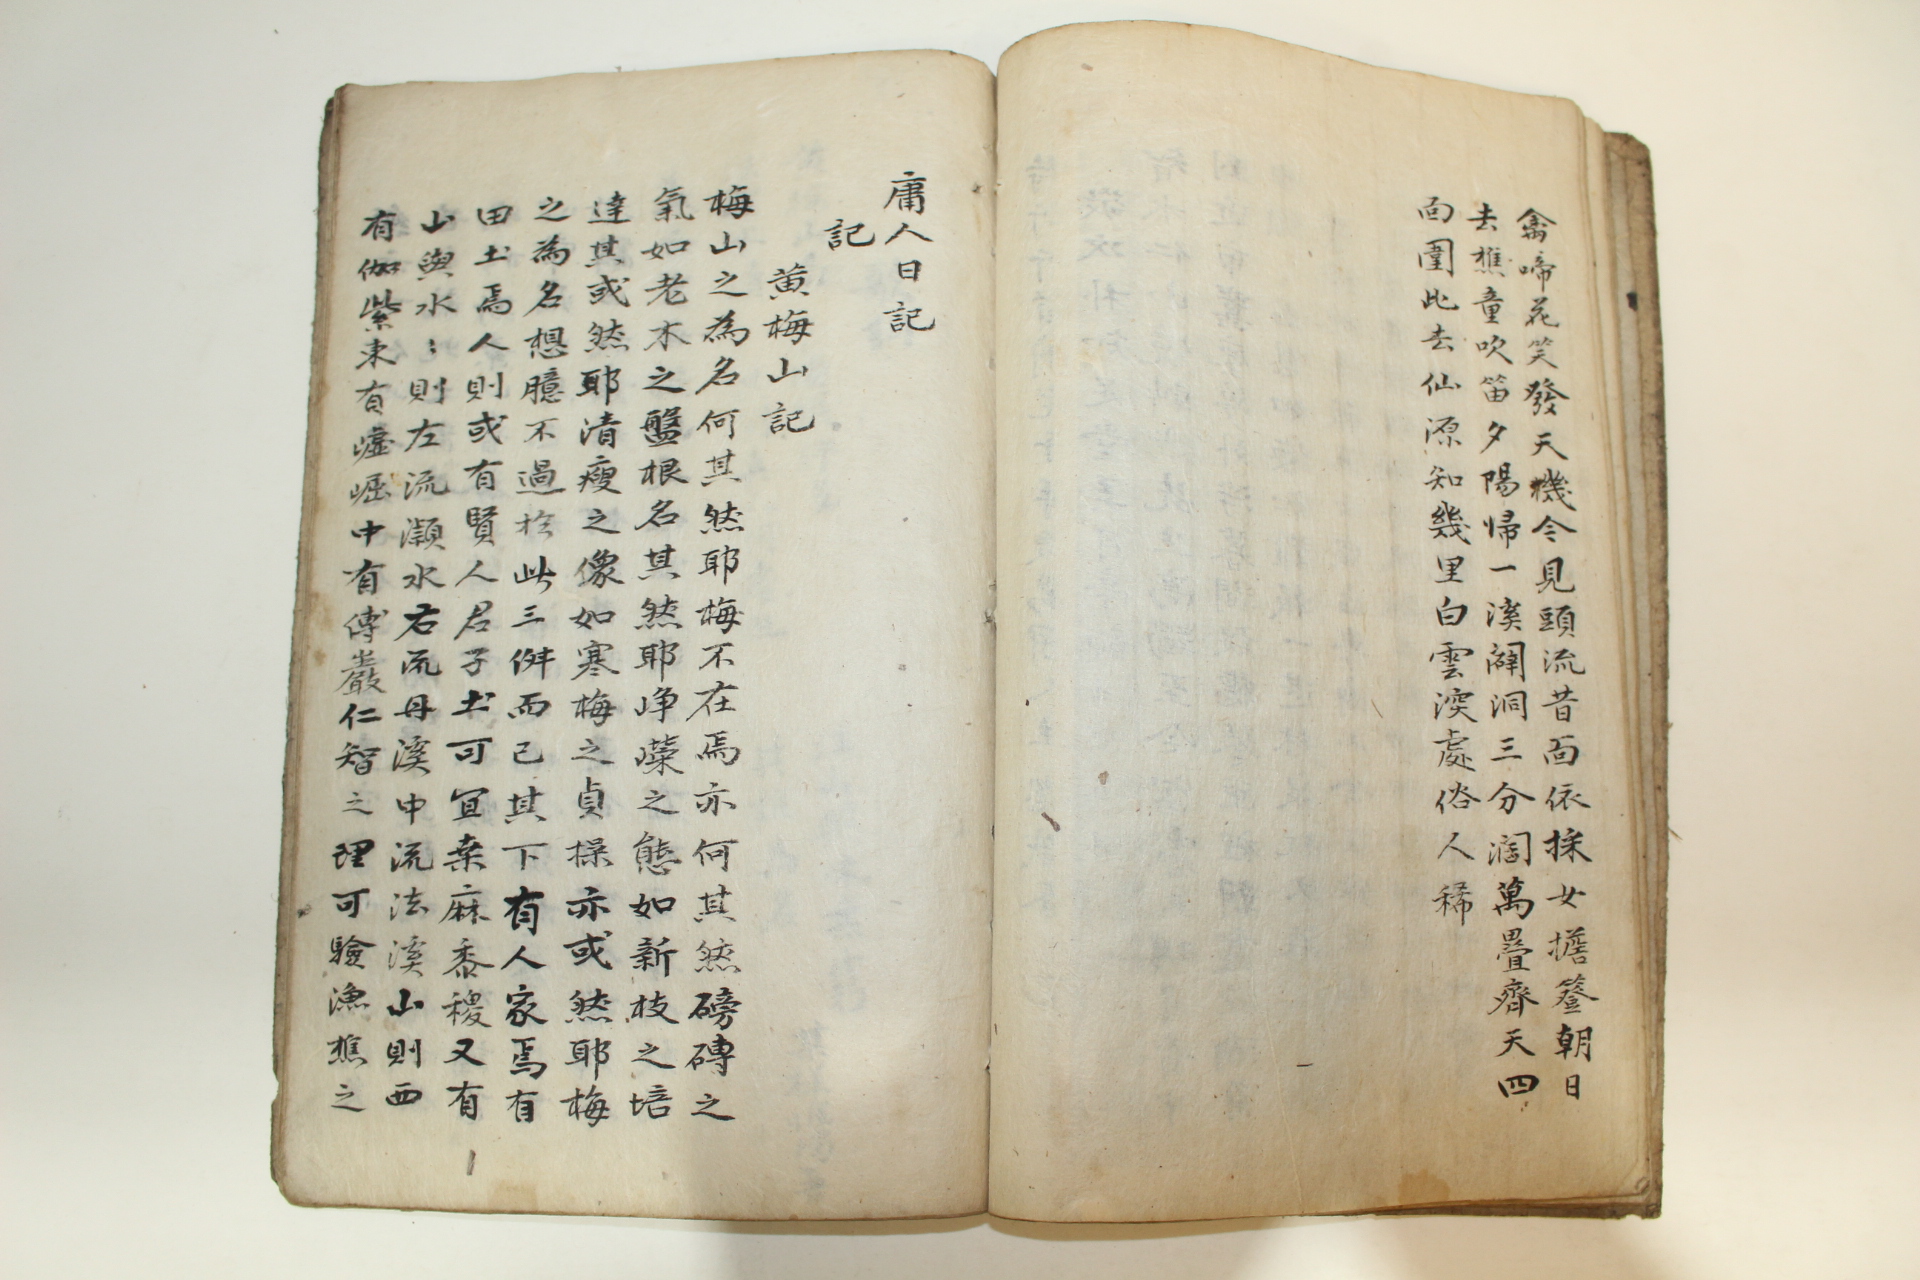 禽啼花笑發天機令見頭流昔面依採女擔簦朝日
去樵童吹笛夕陽帰一溪開洞三分濶萬疊齊天四
面圍此去仙源知幾里白雲深處俗人稀
庸人日記
記
黄梅山記
梅山之為名何其然耶梅不在焉亦何其然磅磚之
氣如老木之盤根名其然耶崢嶸之態如新枝之培
達其或然耶清瘦之像如寒梅之貞操亦或然耶梅
之為名想臆不過於此三件而已其下有人家焉有
田土焉人則或有賢人君子土可宜桒麻黍稷又有
山與水〻則左流灝水右流丹溪中流法溪山則西
有伽紫東有嘘崛中有傅巖仁智之理可驗漁樵之